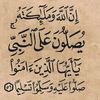 إِنَّ ٱللَّهَ وَمَلَٰٓئِكَتَهُۥ
يُصَلُّونَ عَلَى ٱلنَّبِيِّ
يَٰٓأَيُّهَا ٱلَّذِينَ ءَامَنُوا۟
صَلُّوا۟ عَلَيْهِ وَسَلِّمُوا۟ تَسْلِيمًا